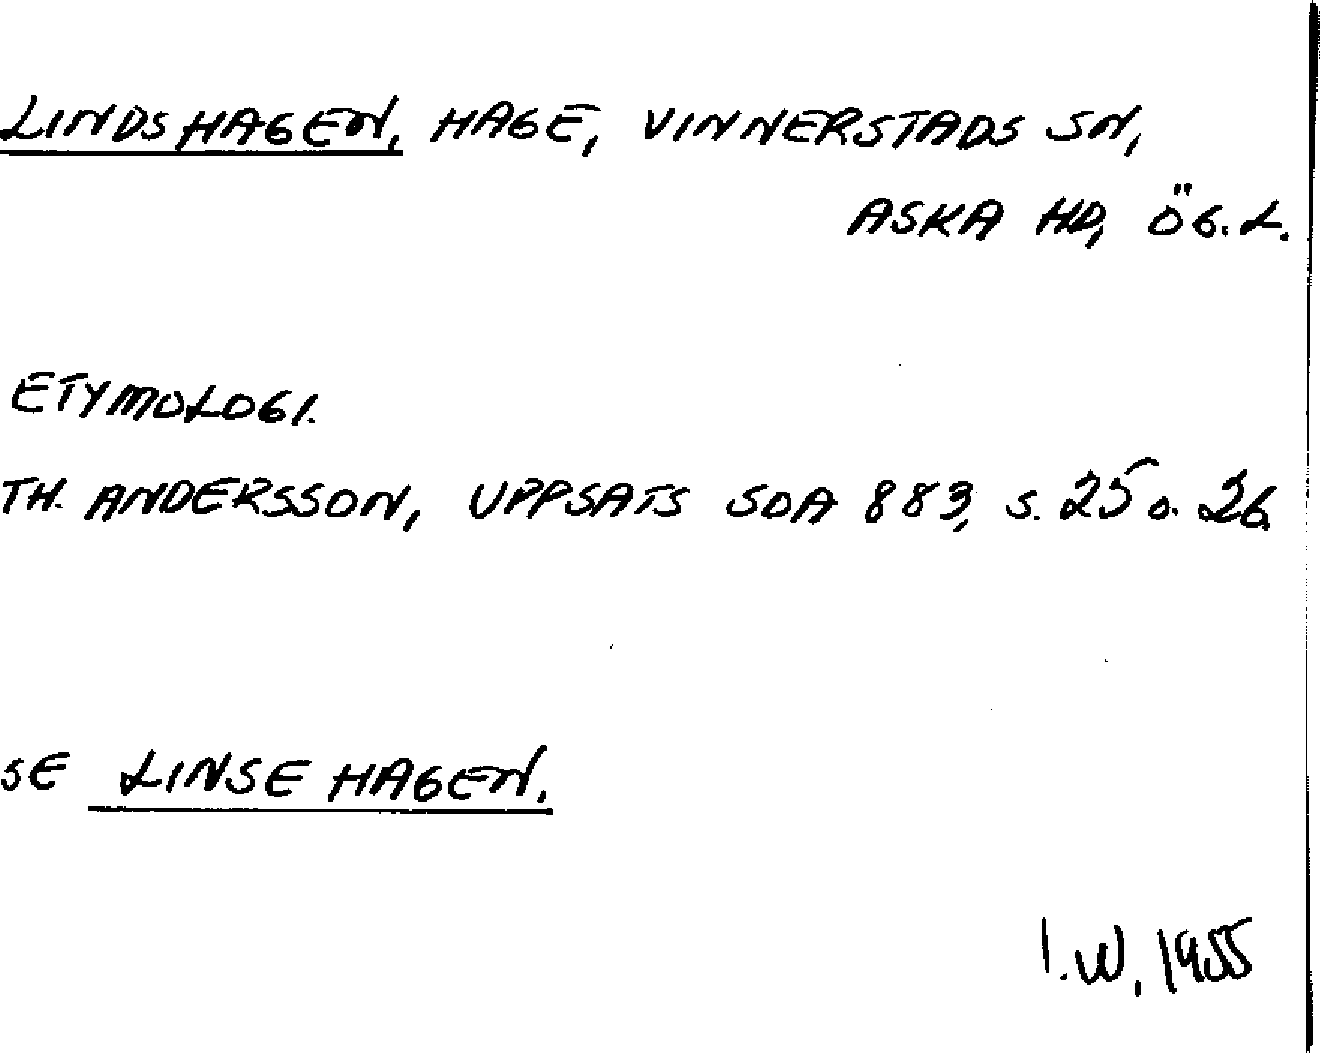 LINDSHAGEN, HAGE, VINNERSTADS SN,
ASKA HD, ÖG.L.
ETYMOLOGI.
TH. ANDERSSON, UPPSATS SOA 883, S. 25 o. 26.
SE LINSE HAGEN.
I.W. 1955